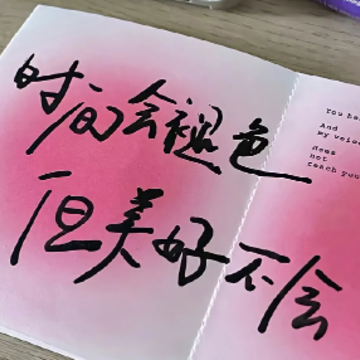 时间会褪色
但美好不会
And
my voice
does
not
reach you